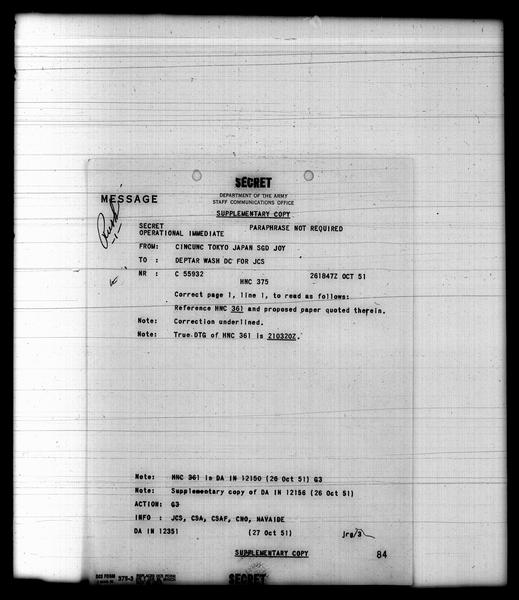 SECRET
DEPARTMENT OF THE ARMY
STAFF COMMUNICATIONS OFFICE
MESSAGE
SUPPLEMENTARY COPY
SECRET PARAPHRASE NOT REQUIRED
OPERATIONAL IMMEDIATE
FROM: CINCUNC TOKYO JAPAN SGD JOY
TO : DEPTAR WASH DC FOR JCS
NR : C 55932 261847Z OCT 51
HNC 375
Correct page 1, line 1, to read as follows:
Reference HNC 361 and proposed paper quoted therein.
Note: Correction underlined.
Note: True DTG of HNC 361 is 210320Z.
Note: HNC 361 is DA IN 12150 (26 Oct 51) G3
Note: Supplementary copy of DA IN 12156 (26 Oct 51)
ACTION: G3
INFO : JCS, CSA, CSAF, CNO, NAVAIDE
DA IN 12351 (27 Oct 51) jrg/3
SUPPLEMENTARY COPY 84
FORM 375-3
SECRET